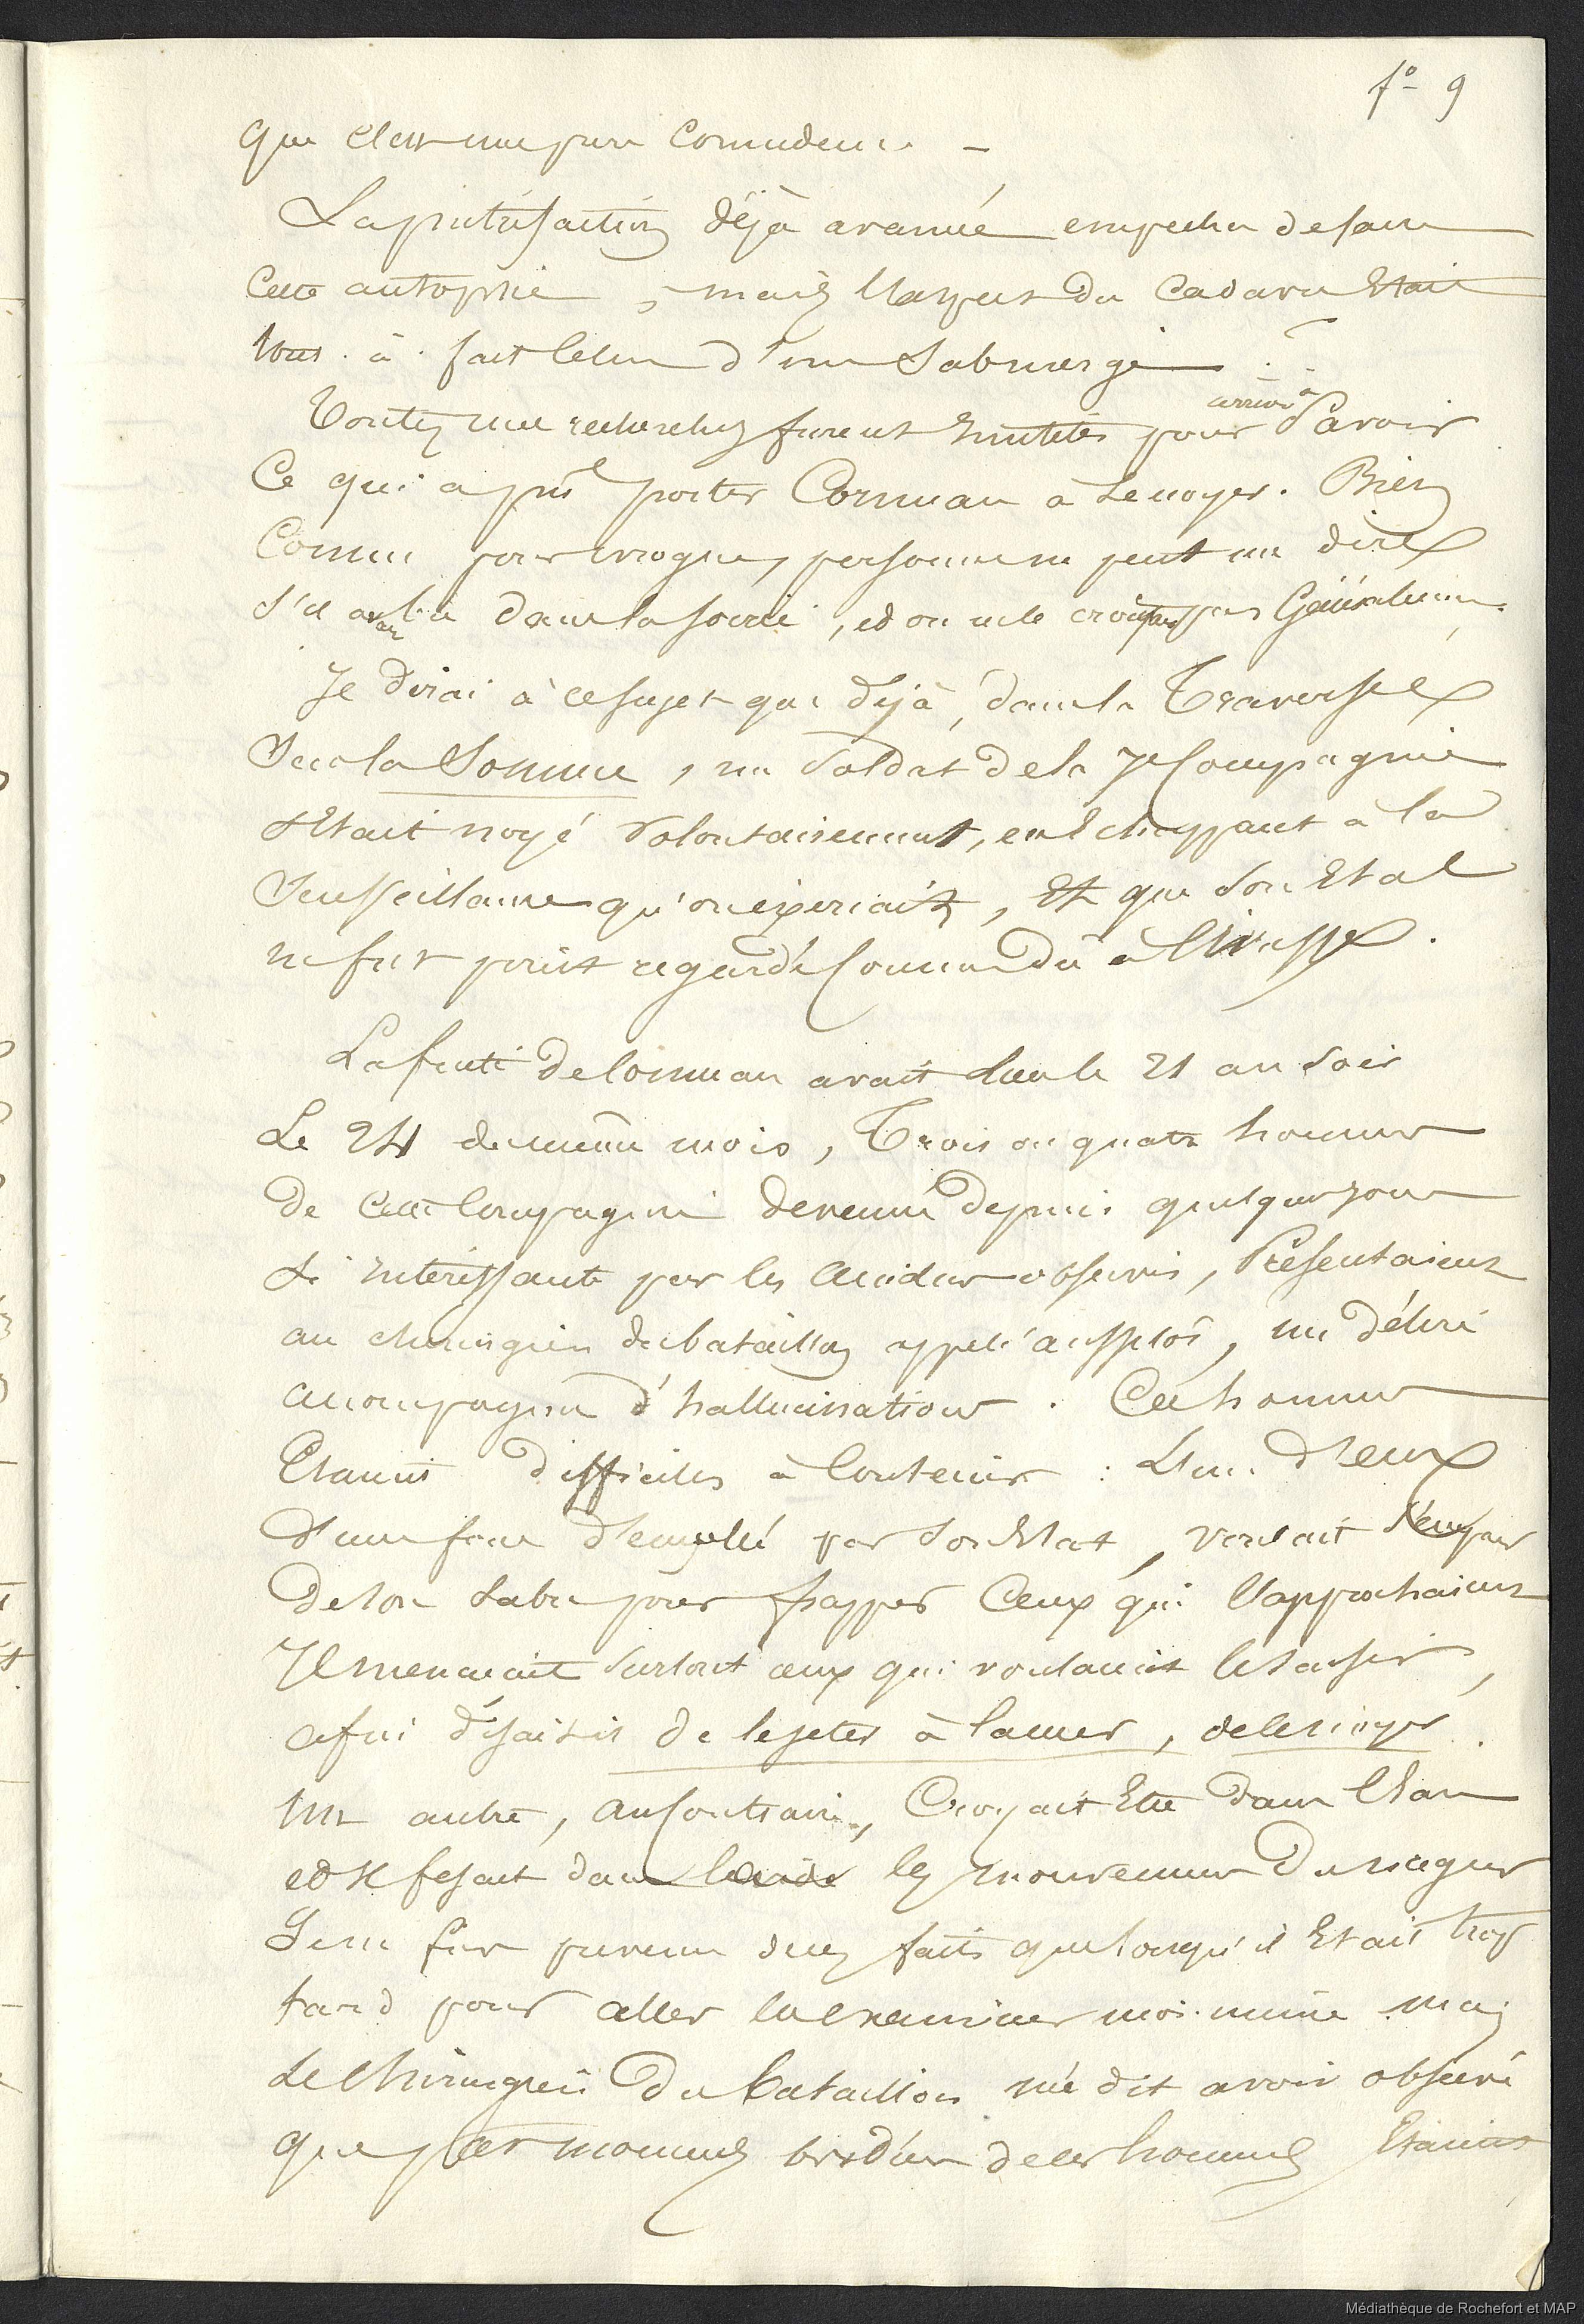 fo 9
que c'est une pure coincidence –
La putréfaction déjà avancée empecha de faire
cette autopsie, mais l'aspect du cadavre était
tout à fait celui d'un submergé.
Toutes mes recherches furent inutiles pour arriver à savoir
Ce qui a pu porter Cornuau à se noyer. Bien
Connu pour ivrogne, personne ne peut me dire
s'il avait bu dans la soirée, et on ne le croit pas Généralement.
Je dirai à ce sujet que déjà, dans la Traversée
sur la Somme, un soldat de la 7e Compagnie
s'était noyé volontairement, en échappant à la
surveillance qu'on exerçait, et que son état
ne fut point regardé comme dû à l'ivresse.
La fuite de Cornuau avait lieu le 21 au soir
Le 24 du même mois, Trois ou quatre hommes
de cette Compagnie devenue depuis quelques jours
si intéressante par les accidens observés, Présentaient
au chirurgien du bataillon appelé aussitôt, un délire
accompagné d'hallucinations. Ces hommes
étaient difficiles à Contenir: L'un d'eux
d'une force décuplée par son état, voulait s'emparer
de son sabre pour frapper Ceux qui l'approchaient
Il menaçait surtout ceux qui voulaient le saisir,
afin disait-il de le jeter à la mer, de le noyer.
Un autre, au Contraire, Croyait être dans l'eau
et il fesait dans le vide les mouvemens du nageur
Je ne fus prévenu de ces faits que lorsqu'il était trop
tard pour aller les examiner moi-même mais
Le Chirurgien du bataillon m'a dit avoir observé
que par momens les d'un de ces hommes étaient